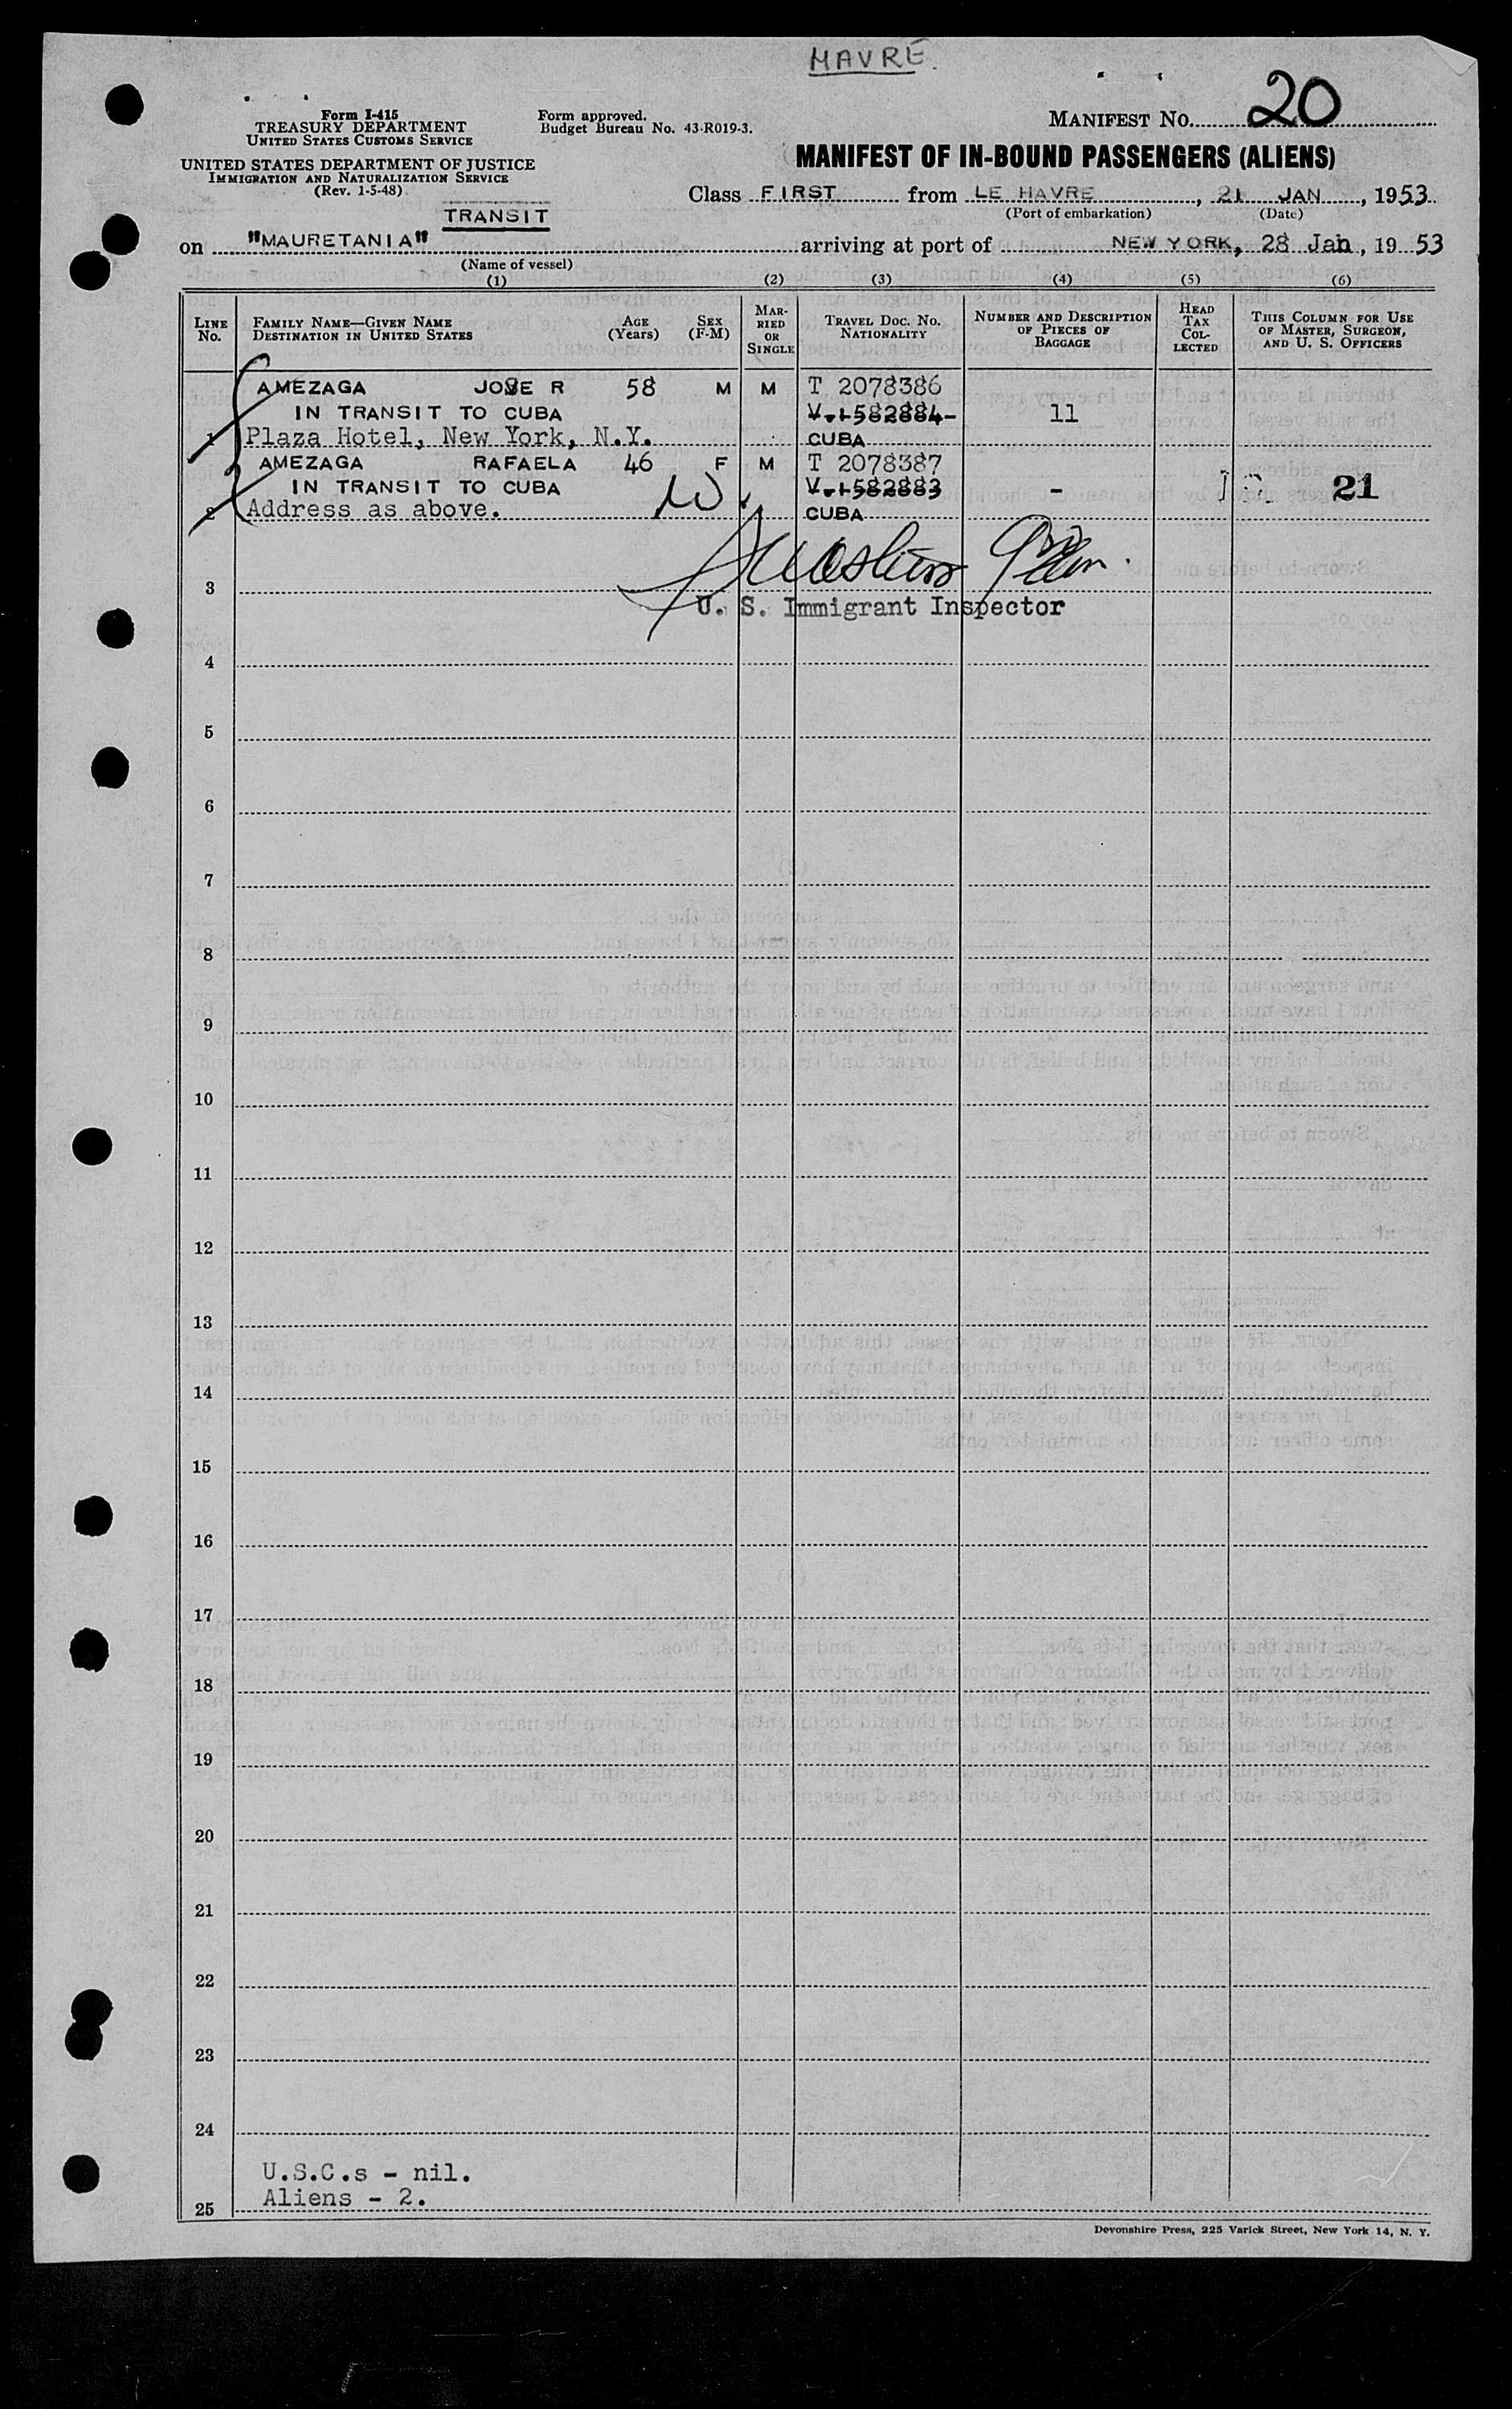 HAVRE.
Form I-415
TREASURY DEPARTMENT
UNITED STATES CUSTOMS SERVICE
UNITED STATES DEPARTMENT OF JUSTICE
IMMIGRATION AND NATURALIZATION SERVICE
(Rev. 1-5-48)
Form approved.
Budget Bureau No. 43-R019-3.
MANIFEST NO. 20
MANIFEST OF IN-BOUND PASSENGERS (ALIENS)
Class FIRST from LE HAVRE, 21 JAN, 1953
(Port of embarkation) (Date)
TRANSIT
on "MAURETANIA" arriving at port of NEW YORK, 28 Jan, 19 53
(Name of vessel)
(1) (2) (3) (4) (5) (6)
LINE NO.
FAMILY NAME—GIVEN NAME
DESTINATION IN UNITED STATES
AGE (Years)
SEX (F-M)
MARRIED OR SINGLE
TRAVEL DOC. NO.
NATIONALITY
NUMBER AND DESCRIPTION OF PIECES OF BAGGAGE
HEAD TAX COLLECTED
THIS COLUMN FOR USE OF MASTER, SURGEON, AND U. S. OFFICERS
AMEZAGA JOSE R 58 M M T 2078386
IN TRANSIT TO CUBA V.I-582884- 11
1 Plaza Hotel, New York, N.Y. CUBA
AMEZAGA RAFAELA 46 F M T 2078387
IN TRANSIT TO CUBA V.I-582883 - 21
2 Address as above. CUBA
3
U. S. Immigrant Inspector
4
5
6
7
8
9
10
11
12
13
14
15
16
17
18
19
20
21
22
23
24
U.S.C.s - nil.
25 Aliens - 2.
Devonshire Press, 225 Varick Street, New York 14, N. Y.